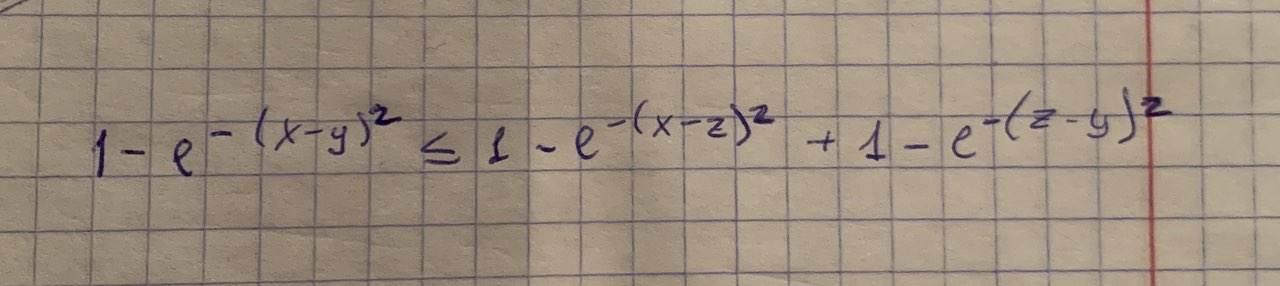 1 - e^{-(x-y)^2} ≤ 1 - e^{-(x-z)^2} + 1 - e^{-(z-y)^2}